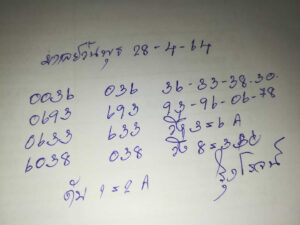 มาเลย์วันพุธ 28-4-64
0036 036 36-33-38-30
0693 693 93-96-06-78
0633 633 วิ่ง 3=6 A
6038 038 วิ่ง 8=3
ดับ 1=2 A